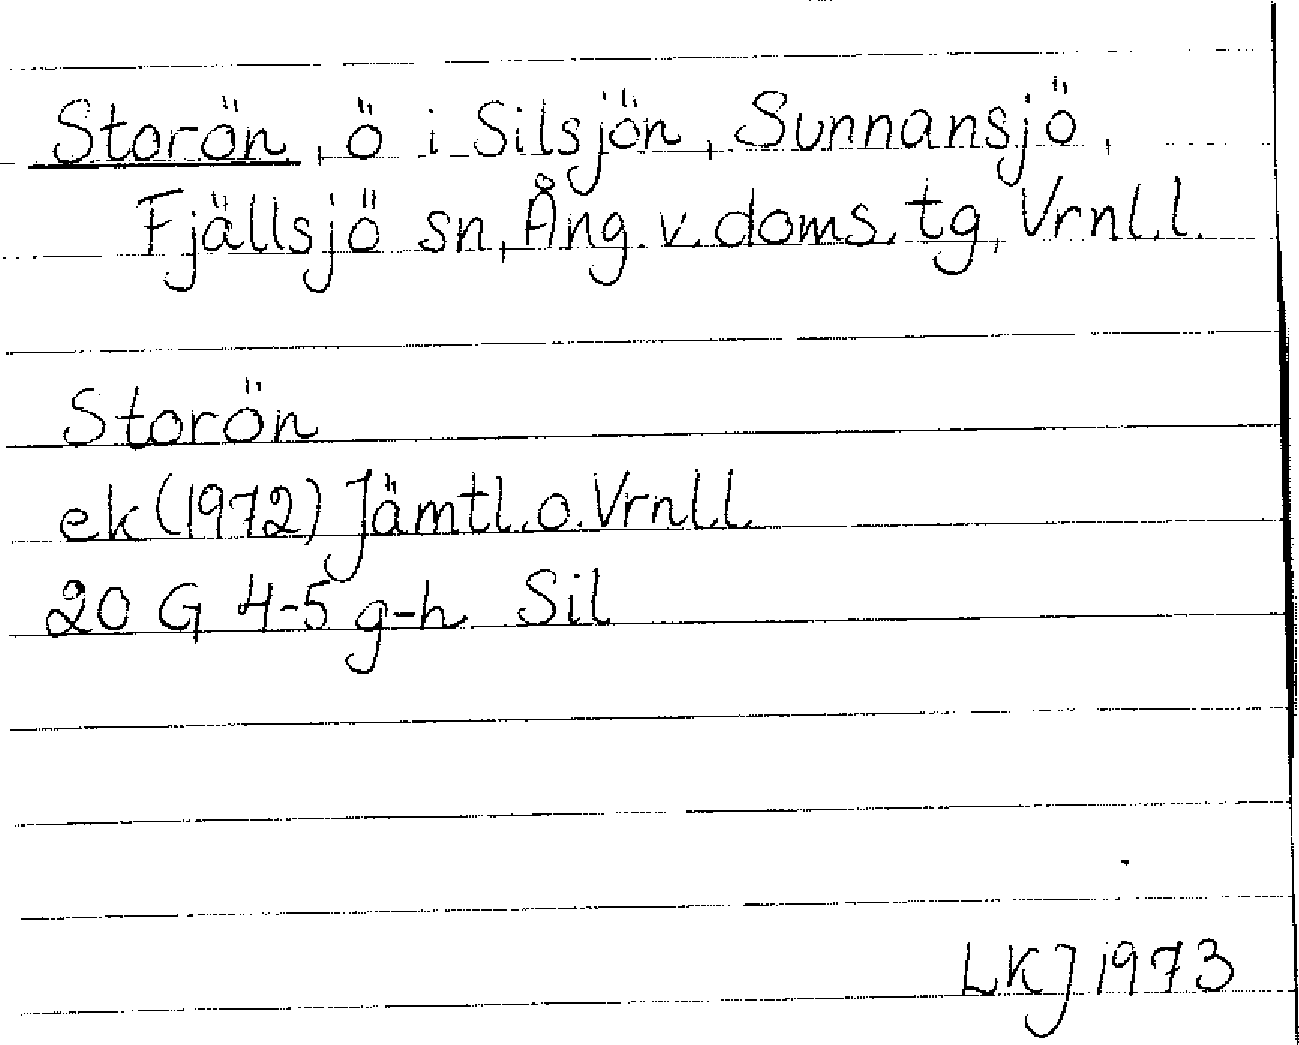 Storön, ö i Silsjön, Sunnansjö,
Fjällsjö sn, Ång. v. doms. tg, Vrnl.l.
Storön
ek (1972) Jämtl. o. Vrnl.l.
20 G 4-5 g-h Sil
LKJ 1973